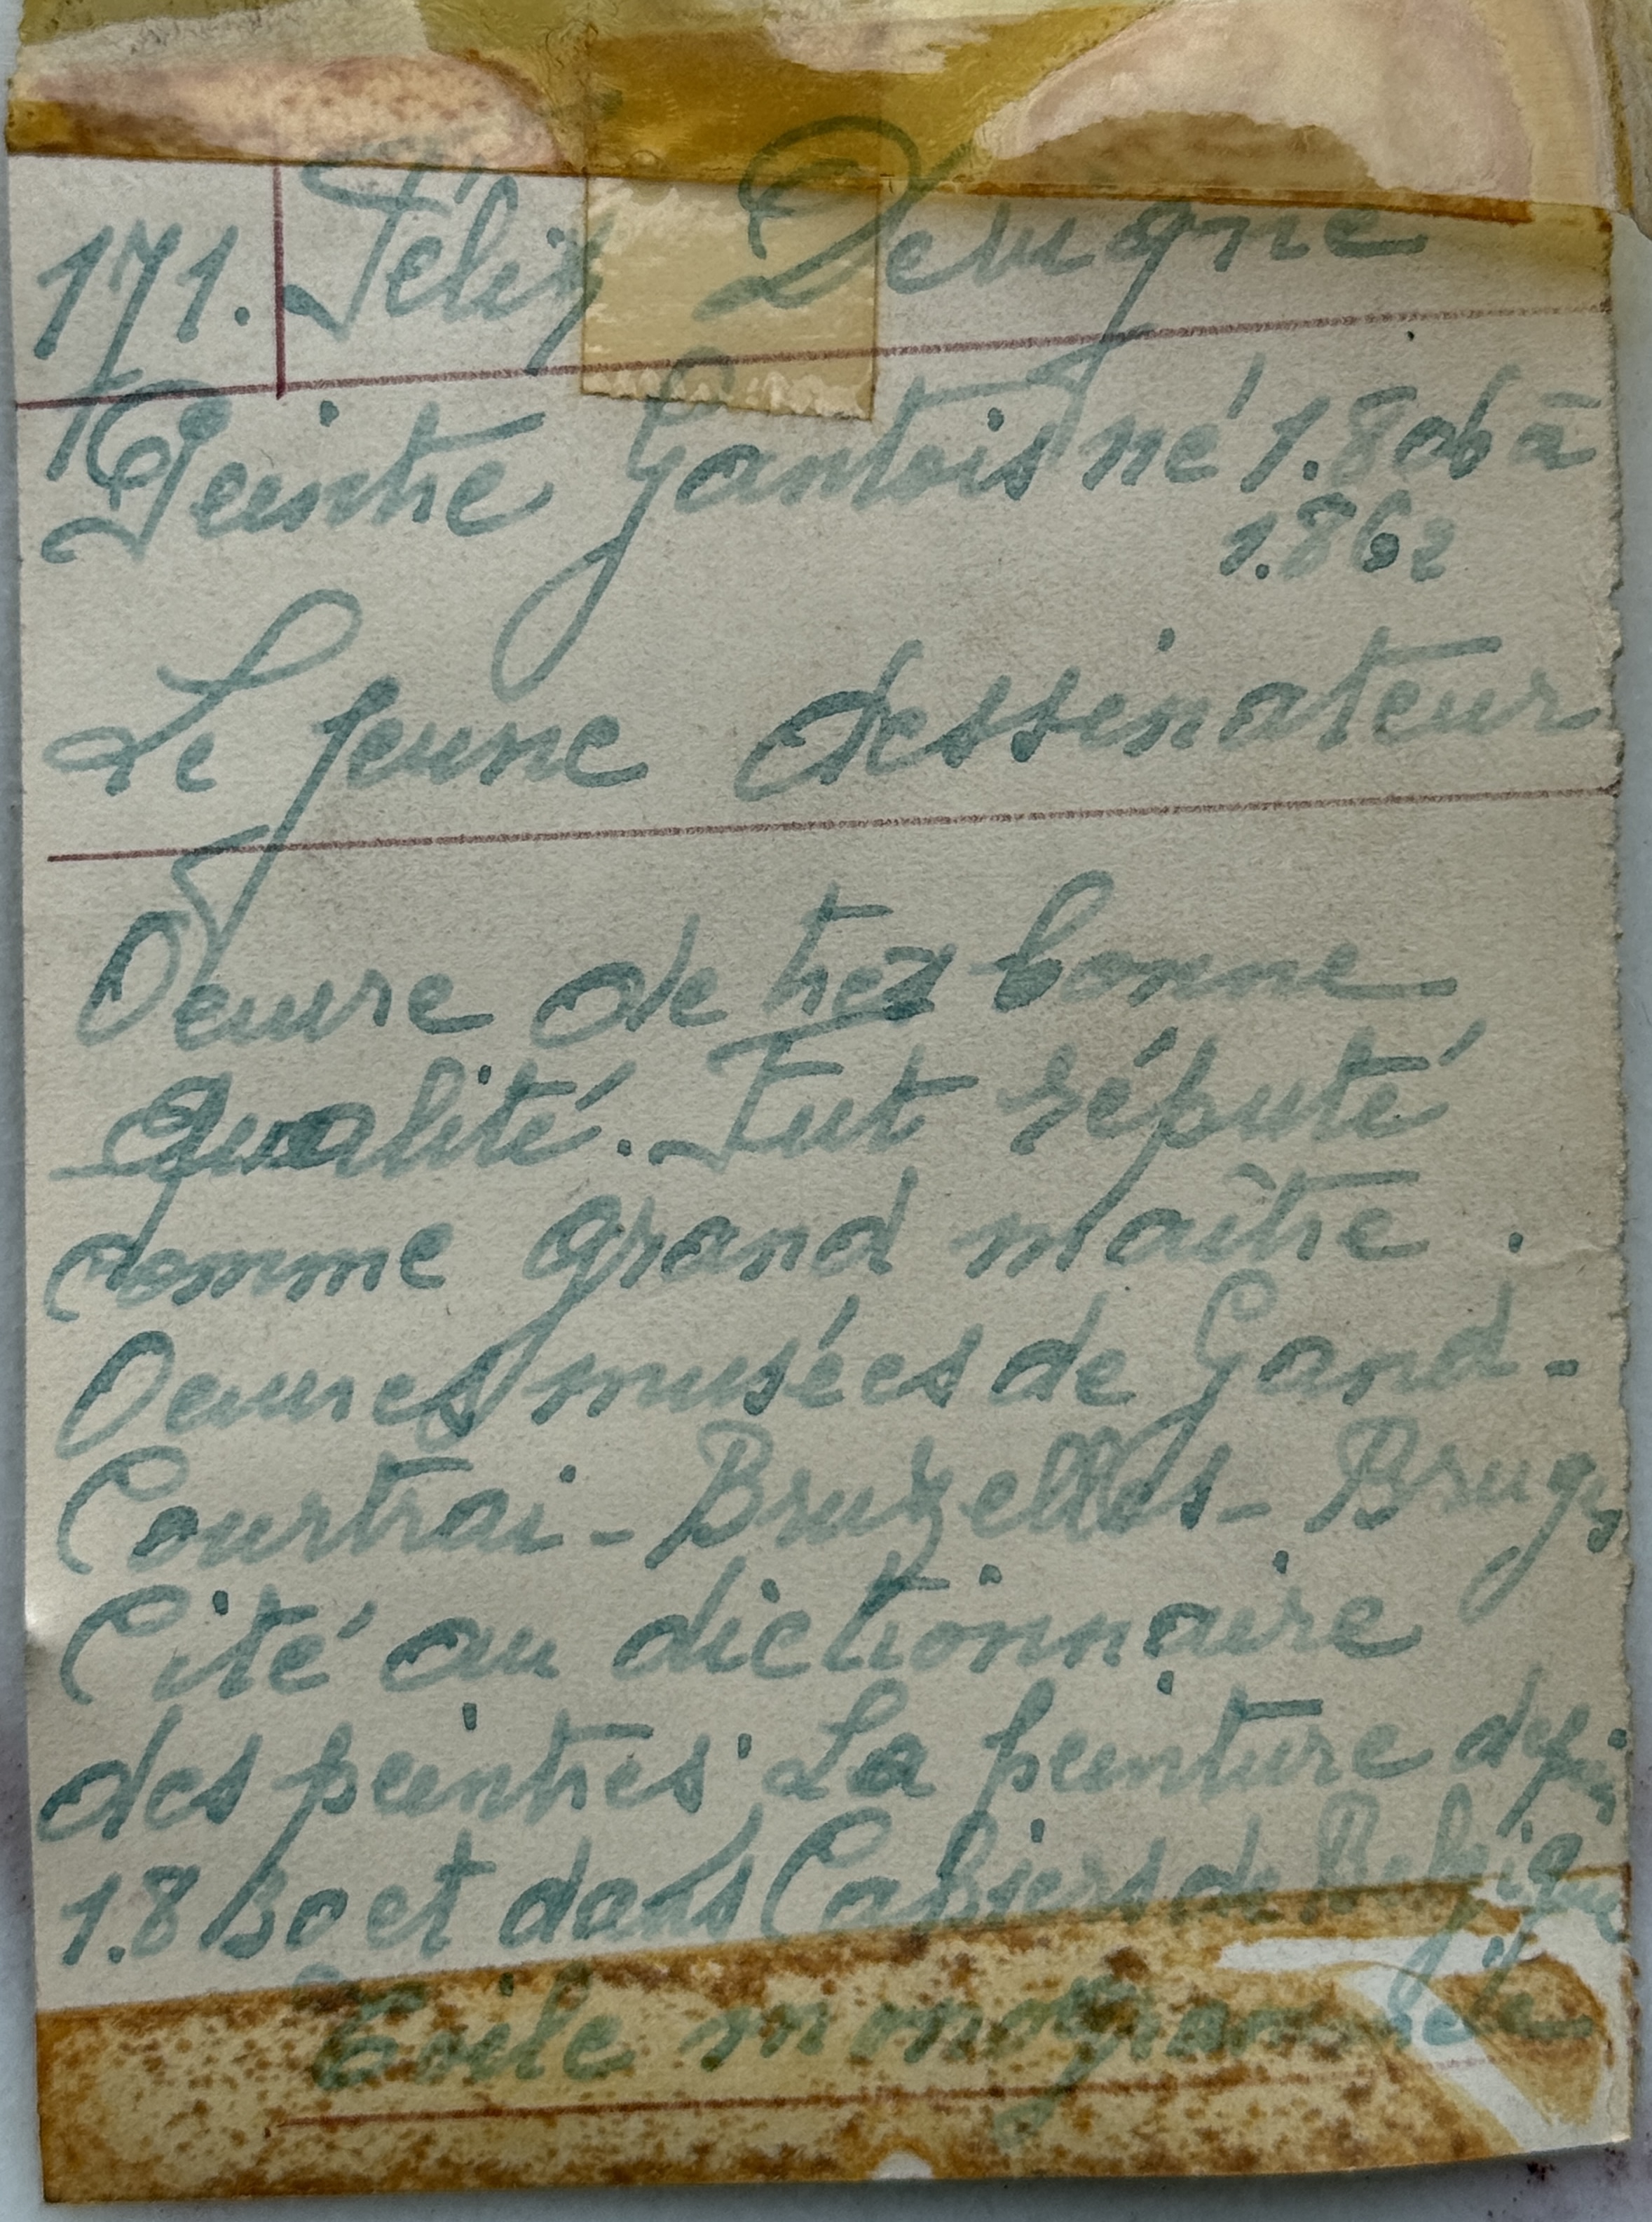 171. Félix Devigne
Peintre Gantois né 1.806 à
1.862
Le jeune dessinateur
Oeuvre de très bonne
Qualité. Fut réputé
comme grand maître.
Oeuvres musées de Gand-
Courtrai - Bruxelles - Bruges
Cité au dictionnaire
des peintres. La peinture depuis
1.830 et dans Cahiers de Belgique
Toile monogrammée